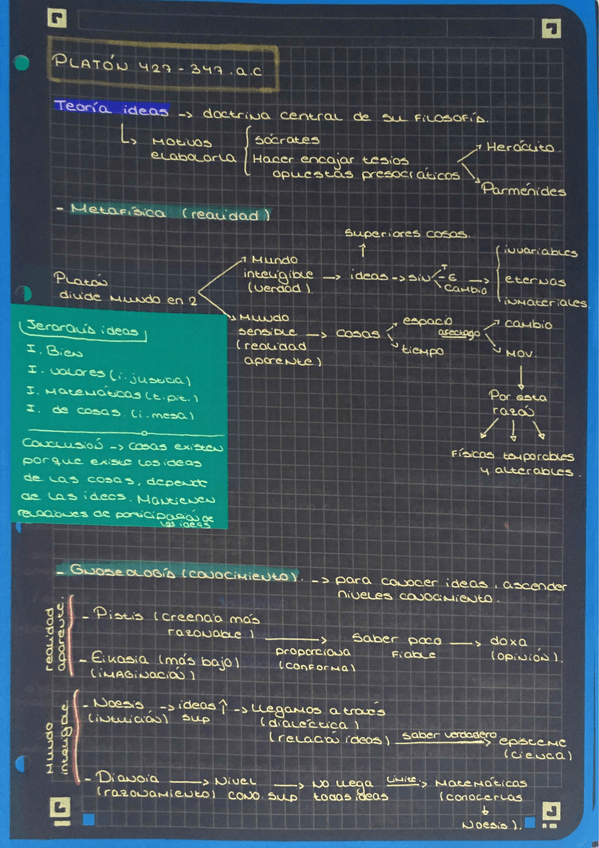 PLATÓN 427-347.a.c
Teoría ideas -> doctrina central de su filosofía.
Motivos elaborarla
Sócrates
Hacer encajar tesis
opuestas presocráticos
Heráclito
Parménides
- Metafísica (realidad)
superiores cosas
Platón
divide mundo en 2
Mundo
inteligible -> ideas -> sin
(verdad)
T
E
cambio
invariables
eternas
inmateriales
Mundo
sensible -> cosas
(realidad
aparente)
espacio
tiempo
afectado
cambio
mov.
Por esta
razón
Físicas temporables
y alterables.
Jerarquís ideas
I. Bien
I. valores (i. justicia)
I. matemáticas (t. pit.)
I. de cosas. (i. mesa)
Conclusión -> cosas existen
porque existe las ideas
de las cosas, depende
de las ideas. Mantienen
relaciones de participación de
las ideas
- Gnoseología (conocimiento). -> para conocer ideas, ascender
niveles conocimiento.
realidad
aparente.
- Pistis (creencia más
razonable)
- Eikasia (más bajo)
(imaginación)
proporciona
(conforma)
saber poco
fiable
doxa
(opinión).
Mundo
inteligible.
- Noesis -> ideas ↑ -> llegamos a través
(intuición) sup (dialéctica)
(relación ideas) saber verdadero episteme
(ciencia)
- Dianoia -> Nivel -> No llega límite -> Matemáticas
(razonamiento) cono. sup todas ideas (conocerlas
Noesis).